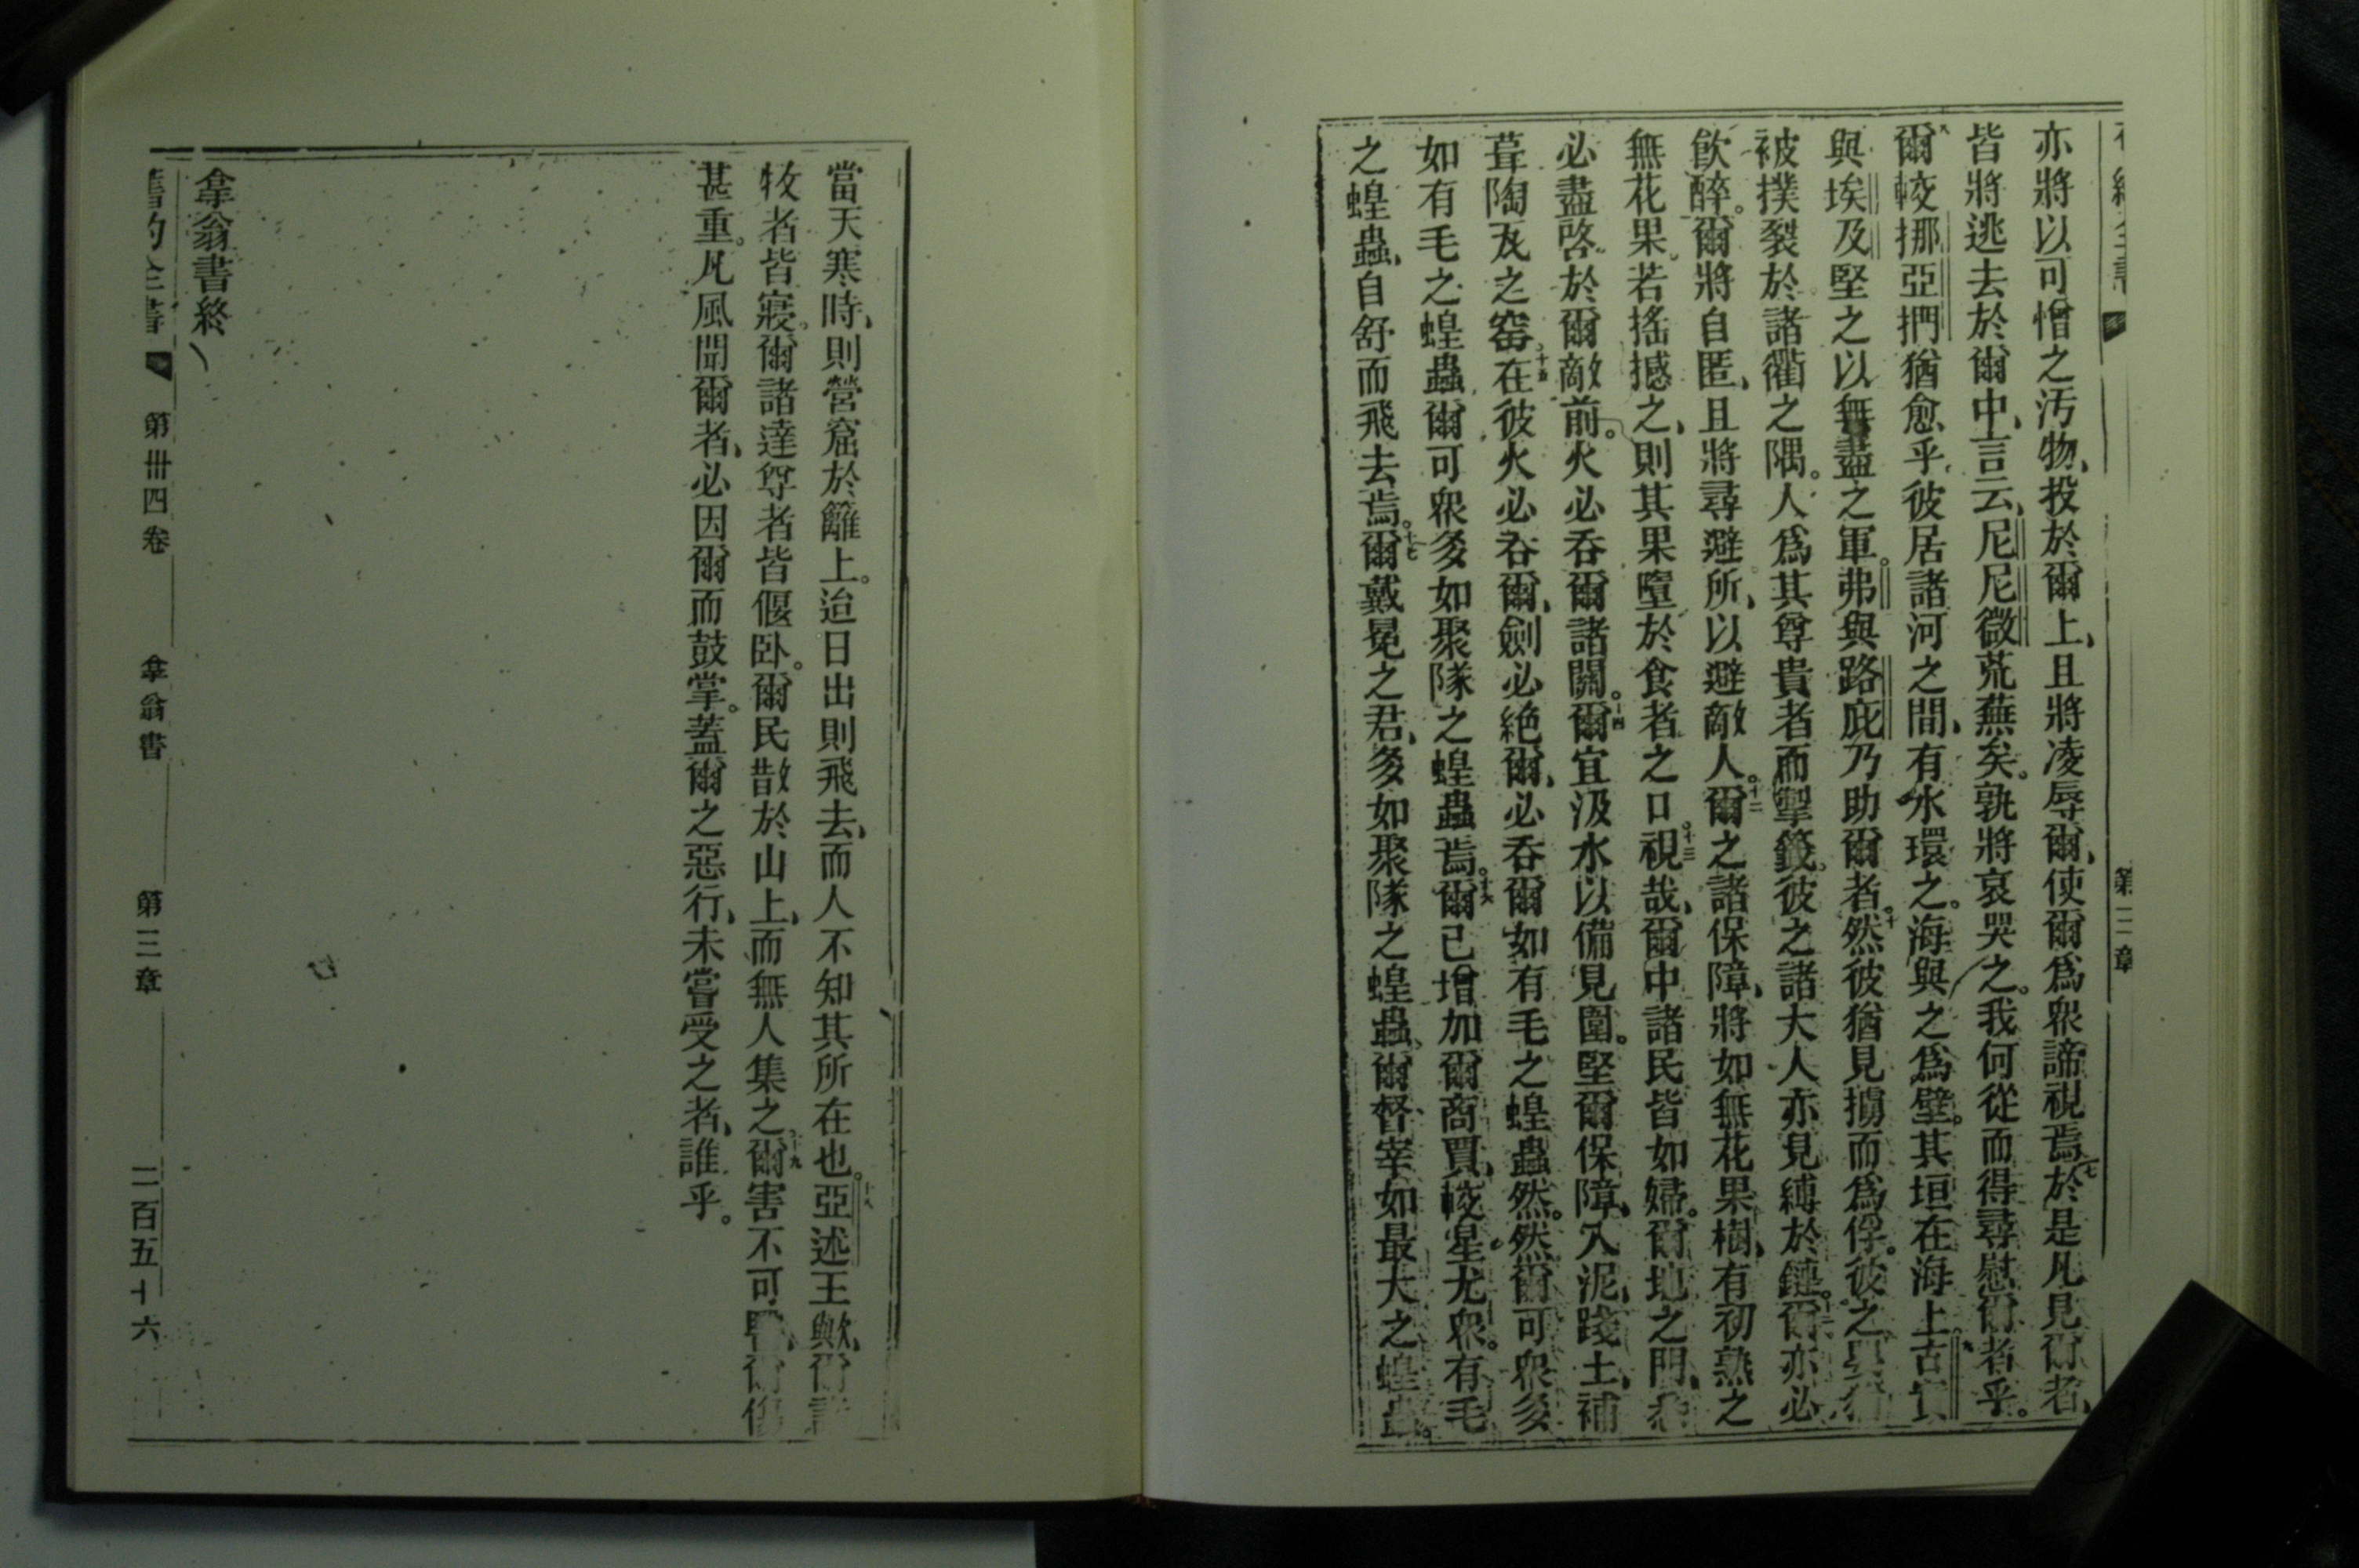 第三章
亦將以可憎之汚物、投於爾上、且將凌辱爾、使爾爲眾諦視焉。七於是凡見爾者、
皆將逃去於爾中、言云、尼尼微荒蕪矣。孰將哀哭之。我何從而得尋慰爾者乎。
八爾較挪亞捫猶愈乎。彼居諸河之間、有水環之。海與之爲壁。其垣在海上。古實
與埃及堅之以無盡之軍。弗與路庇乃助爾者。十然彼猶見擄而爲俘。彼之嬰孩
被撲裂於諸衢之隅。人爲其尊貴者而掣籤。彼之諸大人亦見縛於鏈。十一爾亦必
飲醉。爾將自匿、且將尋避所、以避敵人。十二爾之諸保障、將如無花果樹、有初熟之
無花果。若搖撼之、則其果墮於食者之口。十三視哉、爾中諸民皆如婦。爾地之門、
必盡啓於爾敵前。火必吞爾諸關。十四爾宜汲水以備見圍。堅爾保障、入泥、踐土、補
葺陶瓦之窑。十五在彼火必吞爾、劍必絶爾、必吞爾如有毛之蝗蟲然。然爾可眾多
如有毛之蝗蟲、爾可眾多如聚隊之蝗蟲焉。十六爾已增加爾商賈、較星尤眾。有毛
之蝗蟲、自舒而飛去焉。十七爾戴冕之君、多如聚隊之蝗蟲、爾督宰如最大之蝗蟲。
當天寒時、則營窟於籬上。迨日出則飛去、而人不知其所在也。十八亞述王歟、爾諸
牧者皆寢。爾諸達尊者皆偃卧。爾民散於山上、而無人集之。十九爾害不可醫、爾傷
甚重。凡風聞爾者、必因爾而鼓掌。蓋爾之惡行、未嘗受之者、誰乎。
拿翁書終
舊約全書 第卅四卷 拿翁書 第三章 二百五十六